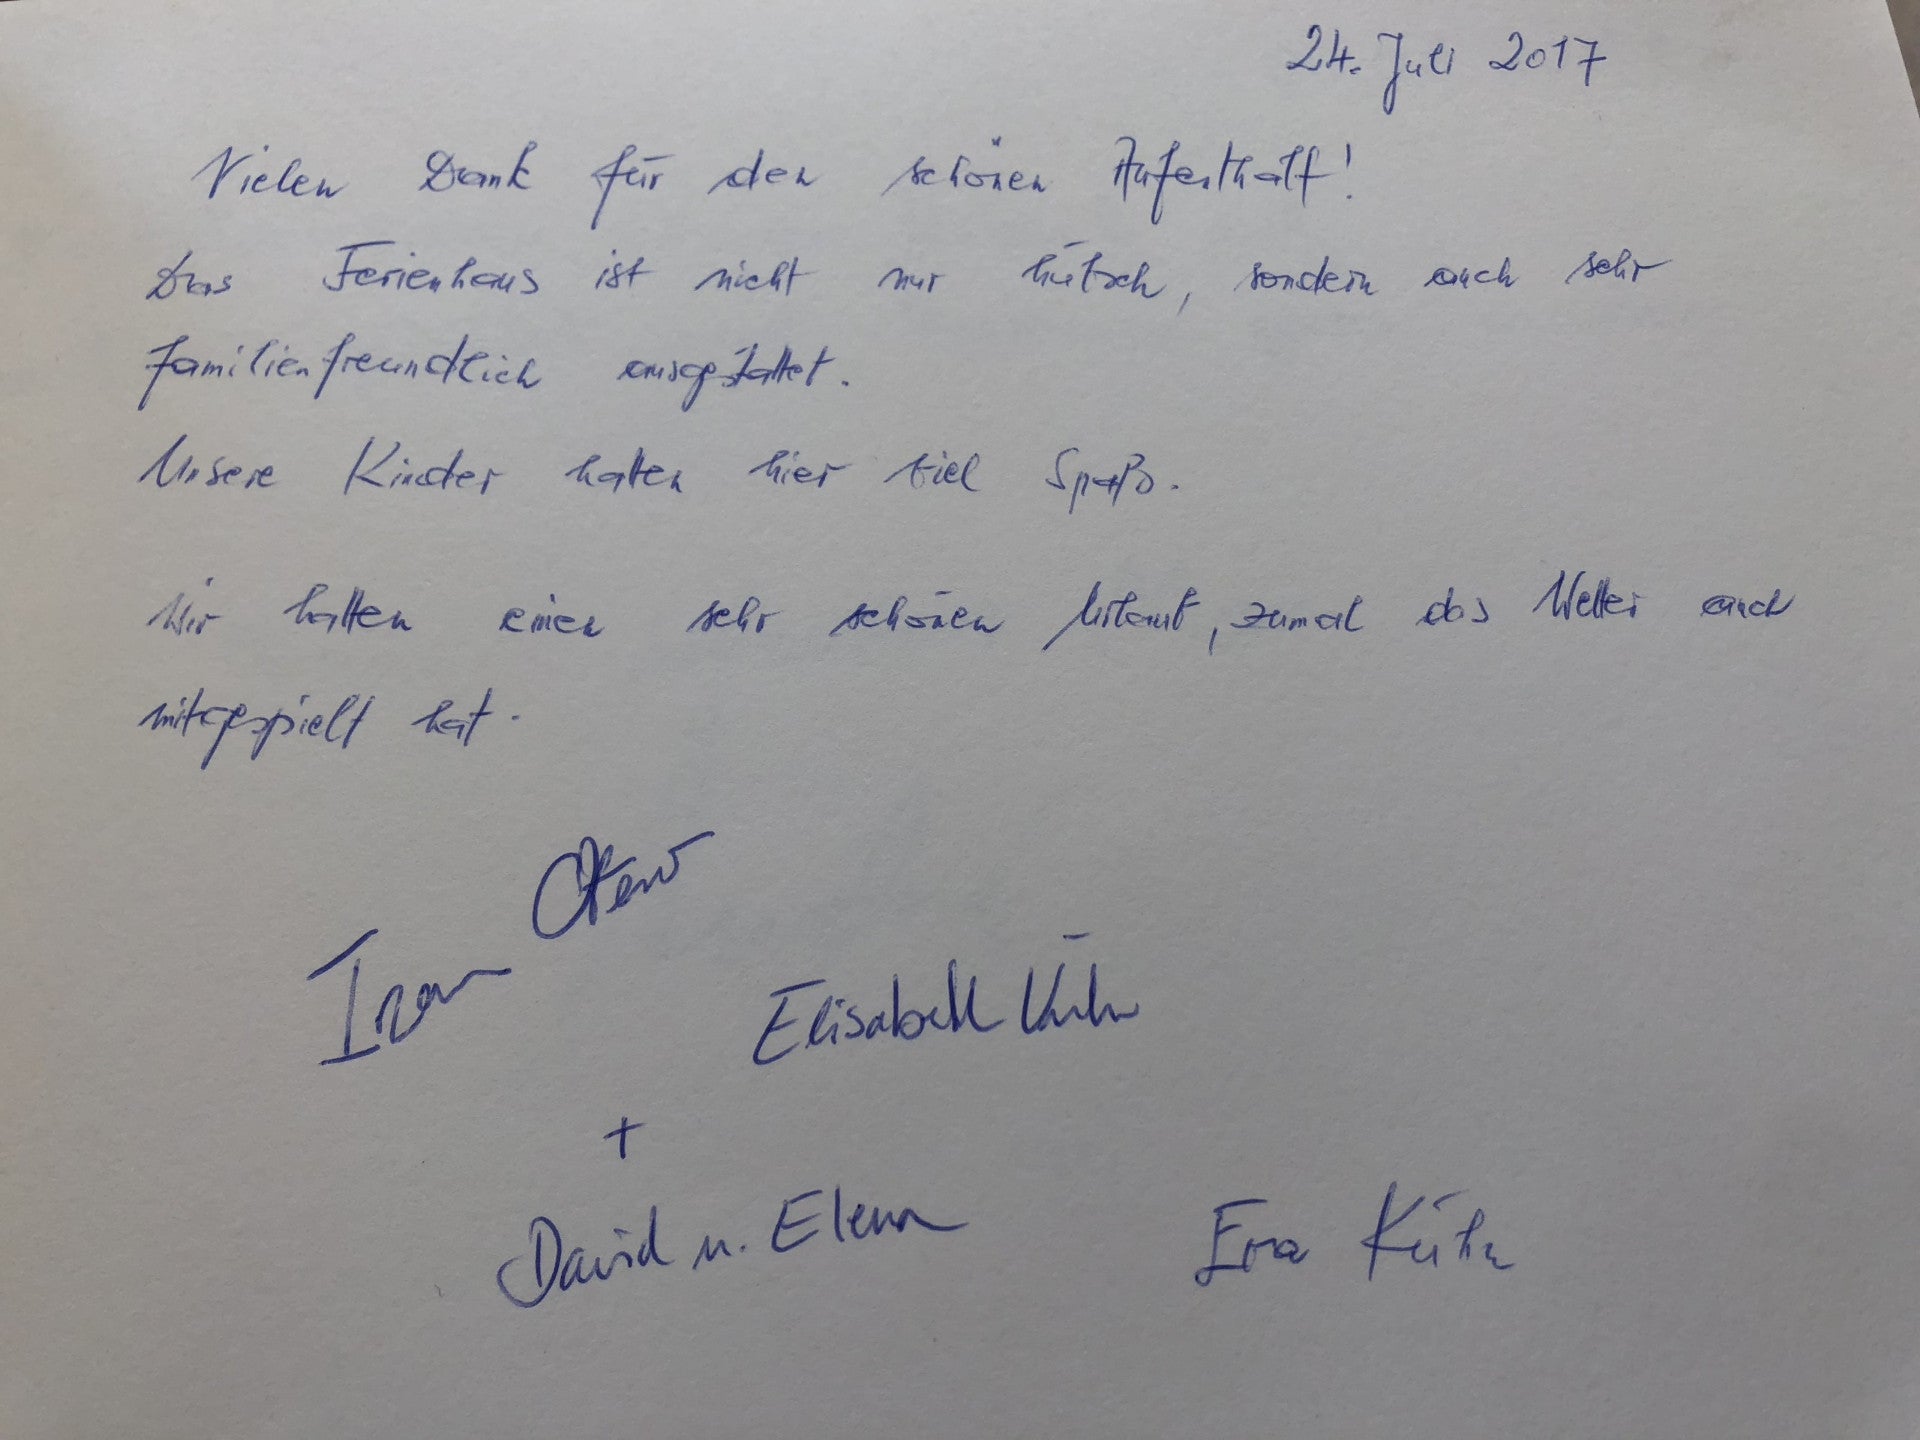 24. Juli 2017
Vielen Dank für den schönen Aufenthalt!
Das Ferienhaus ist nicht nur hübsch, sondern auch sehr
familienfreundlich ausgestattet.
Unsere Kinder hatten hier viel Spaß.
Wir hatten einen sehr schönen Urlaub, zumal das Wetter auch
mitgespielt hat.
Elisabeth Kühn
+
David u. Elena
Eva Kühn